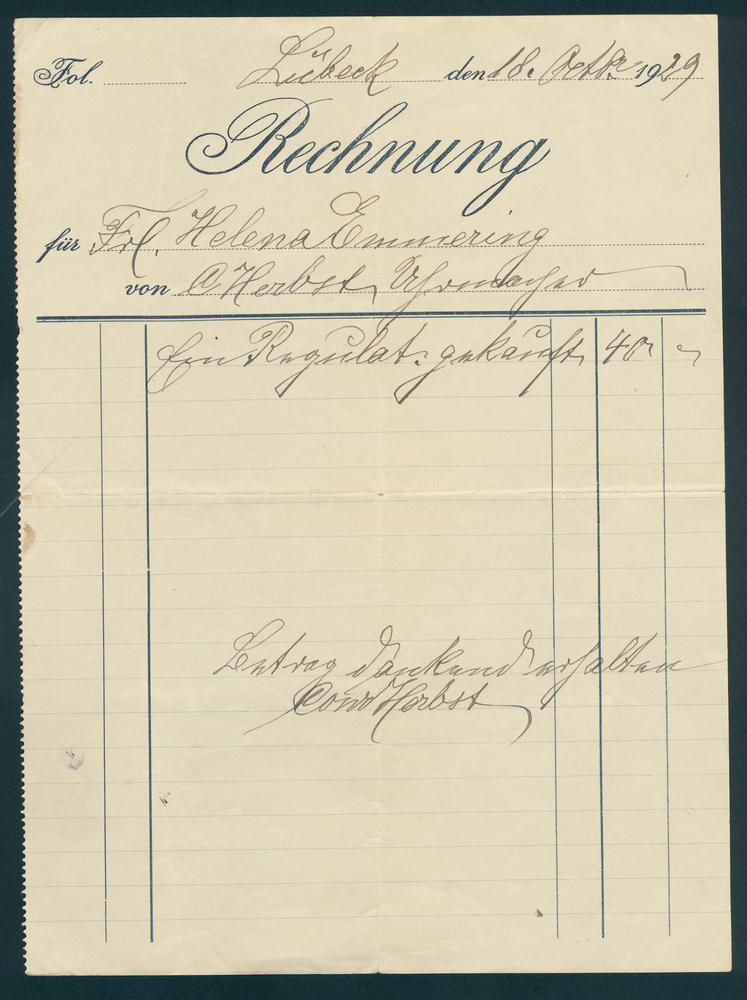 Fol. Lübeck den 18. Octbr 1929
Rechnung
für Frl. Helena Emmering
von C Herbst, Uhrmacher
Ein Regulat: gekauft 40 ,,
Betrag dankend erhalten
Herbst